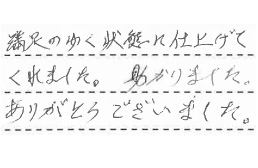 満足のゆく状態に仕上げて
くれました。 助かりました。
ありがとうございました。